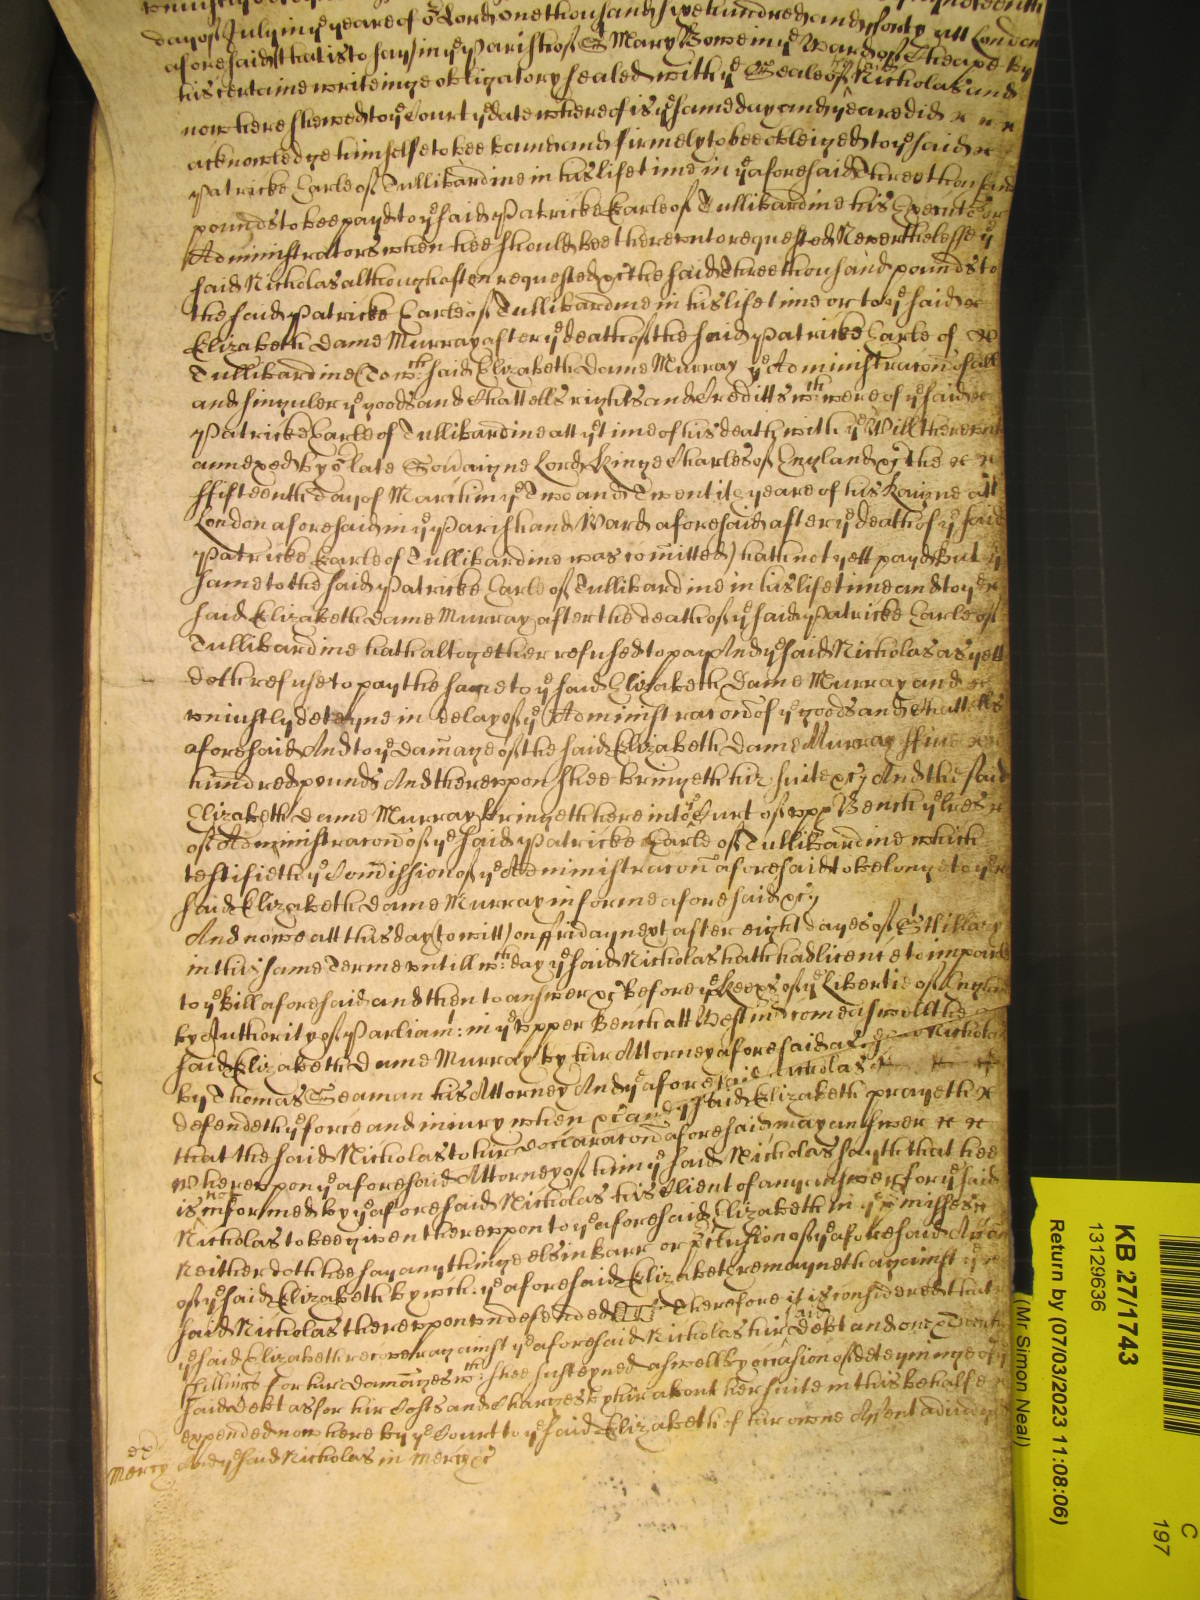 day of July in ye yeare of or Lord one thousand six hundred and forty att London
aforesaid that is to say in ye Parish of St Mary Bowe in ye Ward of Cheape by
his certaine writeinge obligatory sealed with ye Seale of ye said Nicholas and
now here shewed to ye Court ye date whereof is ye same day and yeare did
acknowledge himselfe to bee bound and firmely to bee obleiged to ye said
Patricke Earle of Tullibardine in his life time in ye aforesaid Three thousand
pounds to bee payd to ye said Patricke Earle of Tullibardine his Executors or
Administrators when hee should bee therevnto requested Neverthelesse ye
said Nicholas although often requested &c the said Three thousand pounds to
the said Patricke Earle of Tullibardine in his life time or to ye said
Elizabeth Dame Murray after ye death of the said Patricke Earle of
Tullibardine (To wch: said Elizabeth Dame Murray ye Administracon of all
and singuler ye goods and Chattells rights and Creditts wch were of ye said
Patricke Earle of Tullibardine att ye time of his death with ye Will therevnto
annexed by or late Soveraigne Lord Kinge Charles of England &c the
ffifteenth day of March in ye Two and Twentith yeare of his Raigne att
London aforesaid in ye Parish and Ward aforesaid after ye death of ye said
Patricke Earle of Tullibardine was comitted) hath not yett payd but ye
same to the said Patricke Earle of Tullibardine in his life time and to ye
said Elizabeth Dame Murray after the death of ye said Patricke Earle of
Tullibardine hath altogether refused to pay And ye said Nicholas as yett
doth refuse to pay the same to ye said Elizabeth Dame Murray and
vniustly deteyne in delay of ye Administracon of ye goods and Chattells
aforesaid And to ye damage of the said Elizabeth Dame Murray ffive
hundred pounds And therevpon shee bringeth hir suite &c And the said
Elizabeth Dame Murray bringeth here into ye Court of vpp Bench ye lres
of Administracon of ye said Patricke Earle of Tullibardine which
testifieth ye Comission of ye Administracon aforesaid to belonge to ye
said Elizabeth Dame Murray in forme aforesaid &c
And nowe att this day (to witt) on ffriday next after eight dayes of St Hillary
in this same Terme vntill wch: day ye said Nicholas hath had licence to imparle
to ye bill aforesaid and then to answer &c before ye Keeps of ye Libertie of England
by Authority of Parliamt: in ye Vpper Bench att Westm come aswell the
said Elizabeth Dame Murray by hir Attorney aforesaid as ye Nicholas
by Thomas Seaman his Attorney And ye aforesaid Nicholas
defendeth ye force and iniury when &c and ye said Elizabeth prayeth
that the said Nicholas to hir Declaracon aforesaid may answer
Wherevpon ye aforesaid Attorney of him ye said Nicholas sayth that hee
is not informed by ye aforesaid Nicholas his Client of any answer for ye said
Nicholas to bee given therevpon to ye aforesaid Elizabeth in ye pmisses
Neither doth hee say any thinge els in barr or pclusion of ye aforesaid Accon
of ye said Elizabeth by wch: ye aforesaid Elizabeth remayneth against ye
said Nicholas therevpon vndefended Therefore it is considered that
ye said Elizabeth recover against ye aforesaid Nicholas hir said debt and one &
shillings for hir damages wch: shee susteyned aswell by occasion of deteyninge of ye
said debt as for hir Costs and Charges by hir about her suite in this behalfe
expended now here by ye Court to ye said Elizabeth of hir owne Assent adiudged
And ye said Nicholas in mercy &c
Mercy
KB 27/1743
13129636
Return by (07/03/2023 11:08:06)
(Mr Simon Neal)
C
197